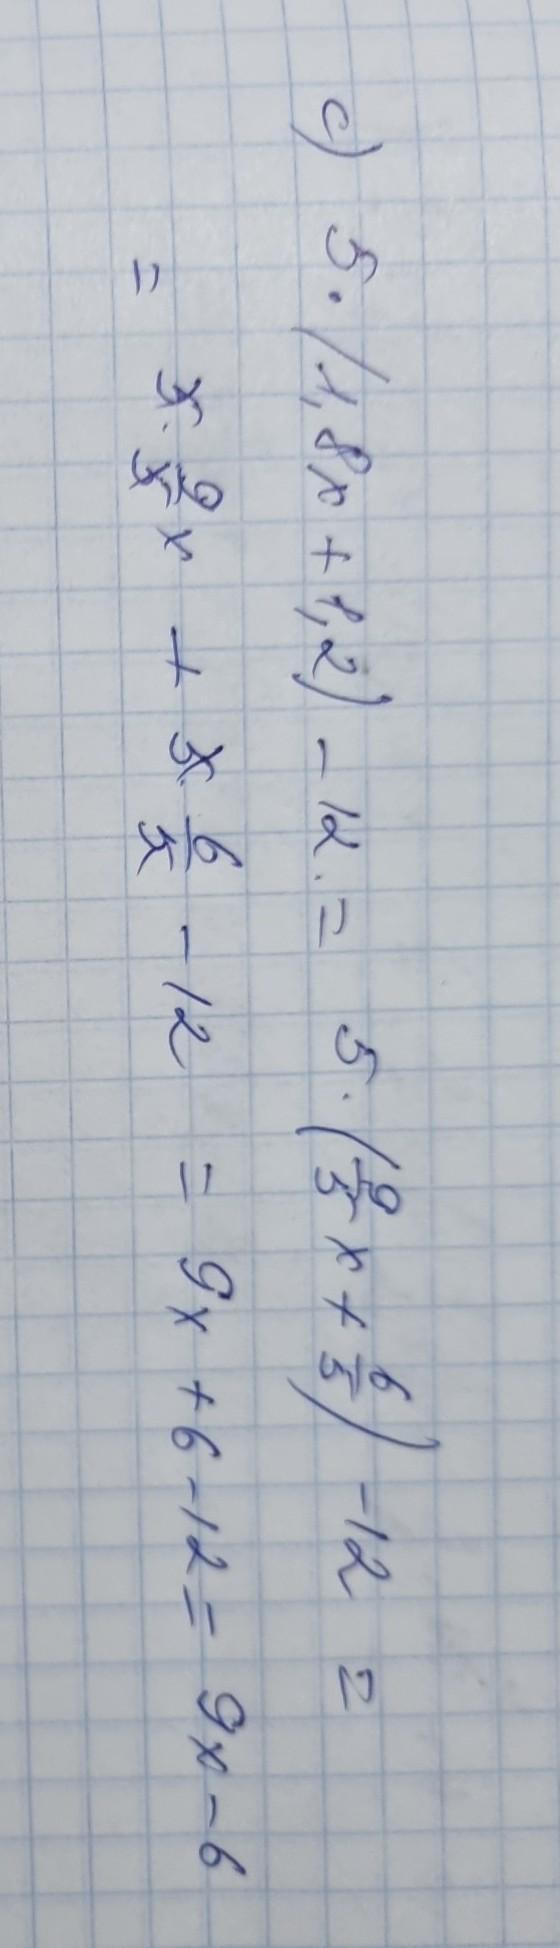 c) 5 · (1,8x + 1,2) - 12 . = 5 · (9/5 x + 6/5) - 12 =
= 5 · 9/5 x + 5 · 6/5 - 12 = 9x + 6 - 12 = 9x - 6